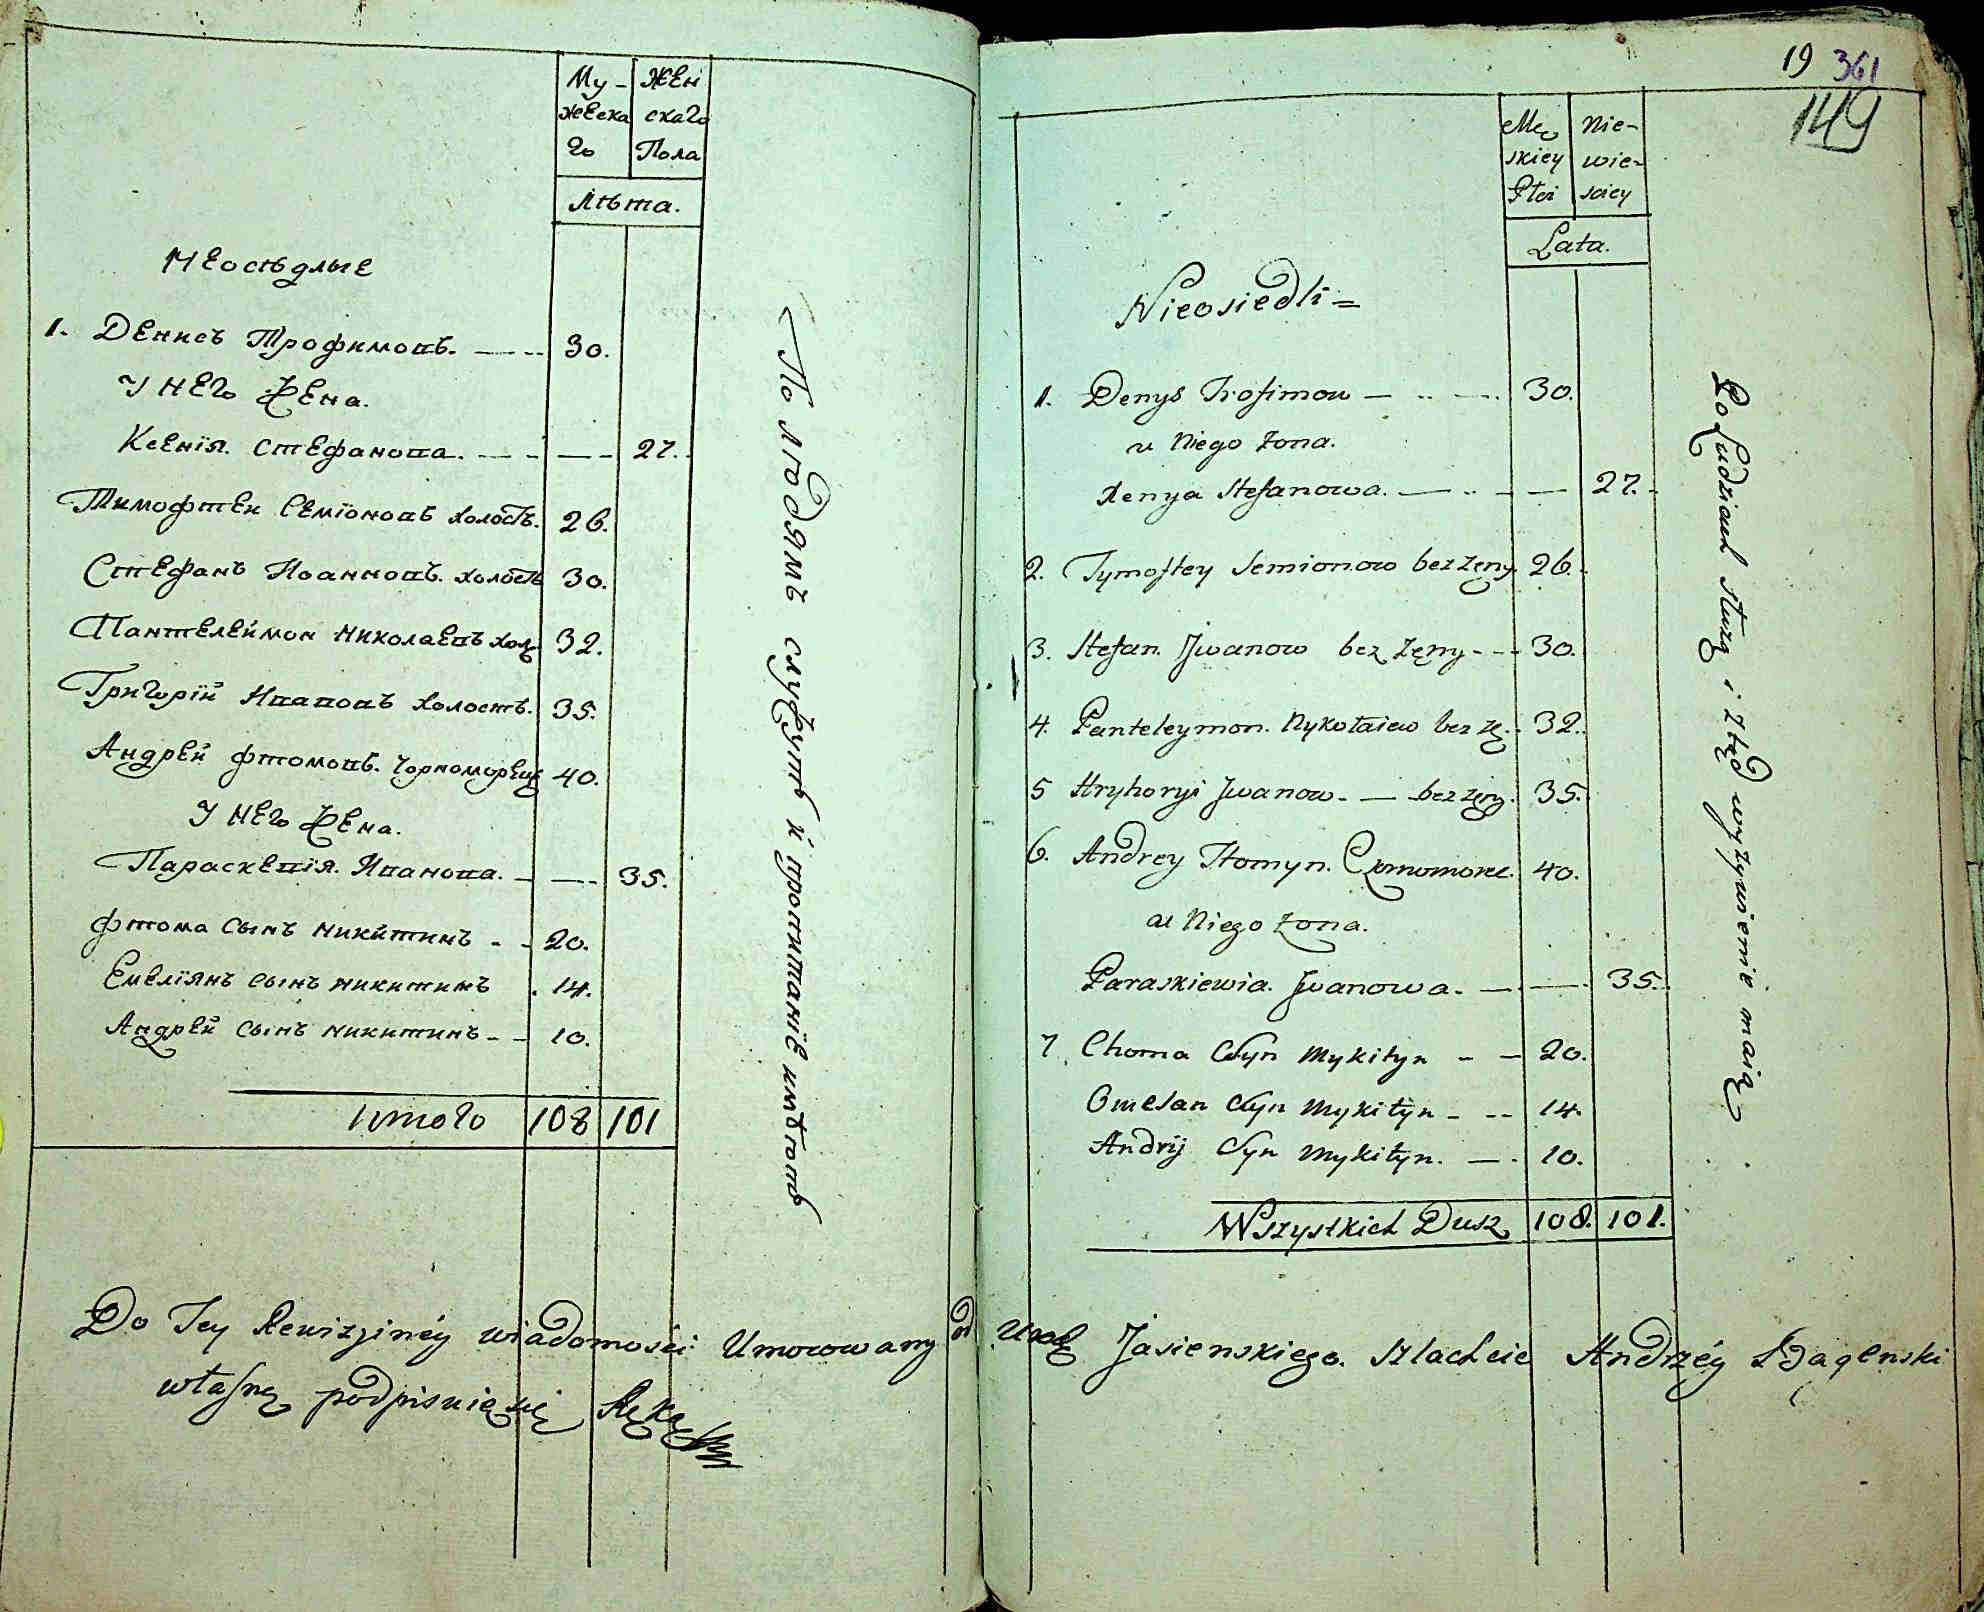 Му- Жен
жеска скаго
го Пола
Лѣта.
Неосѣдлые
1. Денисъ Трофимовъ. 30.
У него жена.
Ксенїя. Стефанова. 27.
Тимофтей Семїоновъ холостъ. 26.
Стефанъ Иоанновъ. холостъ 30.
Пантелеймон Николаевъ хол 32.
Григорїй Ивановъ холостъ. 35.
Андрей Фтомовъ. Чорноморец 40.
У него жена.
Параскевїя. Иванова. 35.
Фтома сынъ Никитинъ 20.
Емелїянъ сынъ Никитинъ 14.
Андрей сынъ Никитинъ 10.
Итого 108 101
По людямъ служутъ и пропитанїе имѣютъ
19 361
149
Mę Nie-
skiey wie-
Płci sciey
Lata.
Nieosiedli =
1. Denys Trofimow 30.
u Niego żona.
Xenya Stefanowa. 27.
2. Tymoftey Semionow bez żeny 26.
3. Stefan Jwanow bez żęny 30.
4. Panteleymon. Nykołaiew bez żę. 32.
5 Hryhoryi Jwanow. bez żęny. 35.
6. Andrey Ftomyn. Czornomorec. 40.
u Niego żona.
Paraskiewia. Jwanowa. 35.
7 Choma Syn Mykityn 20.
Omelan Syn Mykityn 14.
Andrij Syn Mykityn. 10.
Wszystkich Dusz 108. 101.
Po Ludziach służą i ztąd wyżywienie maią
Do Tey Rewizyiney wiadomości Umocowany od Jasienskiego. Szlachcic Andrzéy
własną podpisuię się Ręką